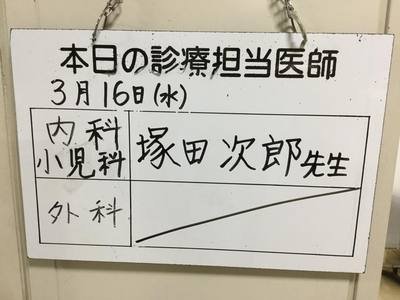 本日の診療担当医師
3月16日(水)
内科
小児科
塚田次郎先生
外科